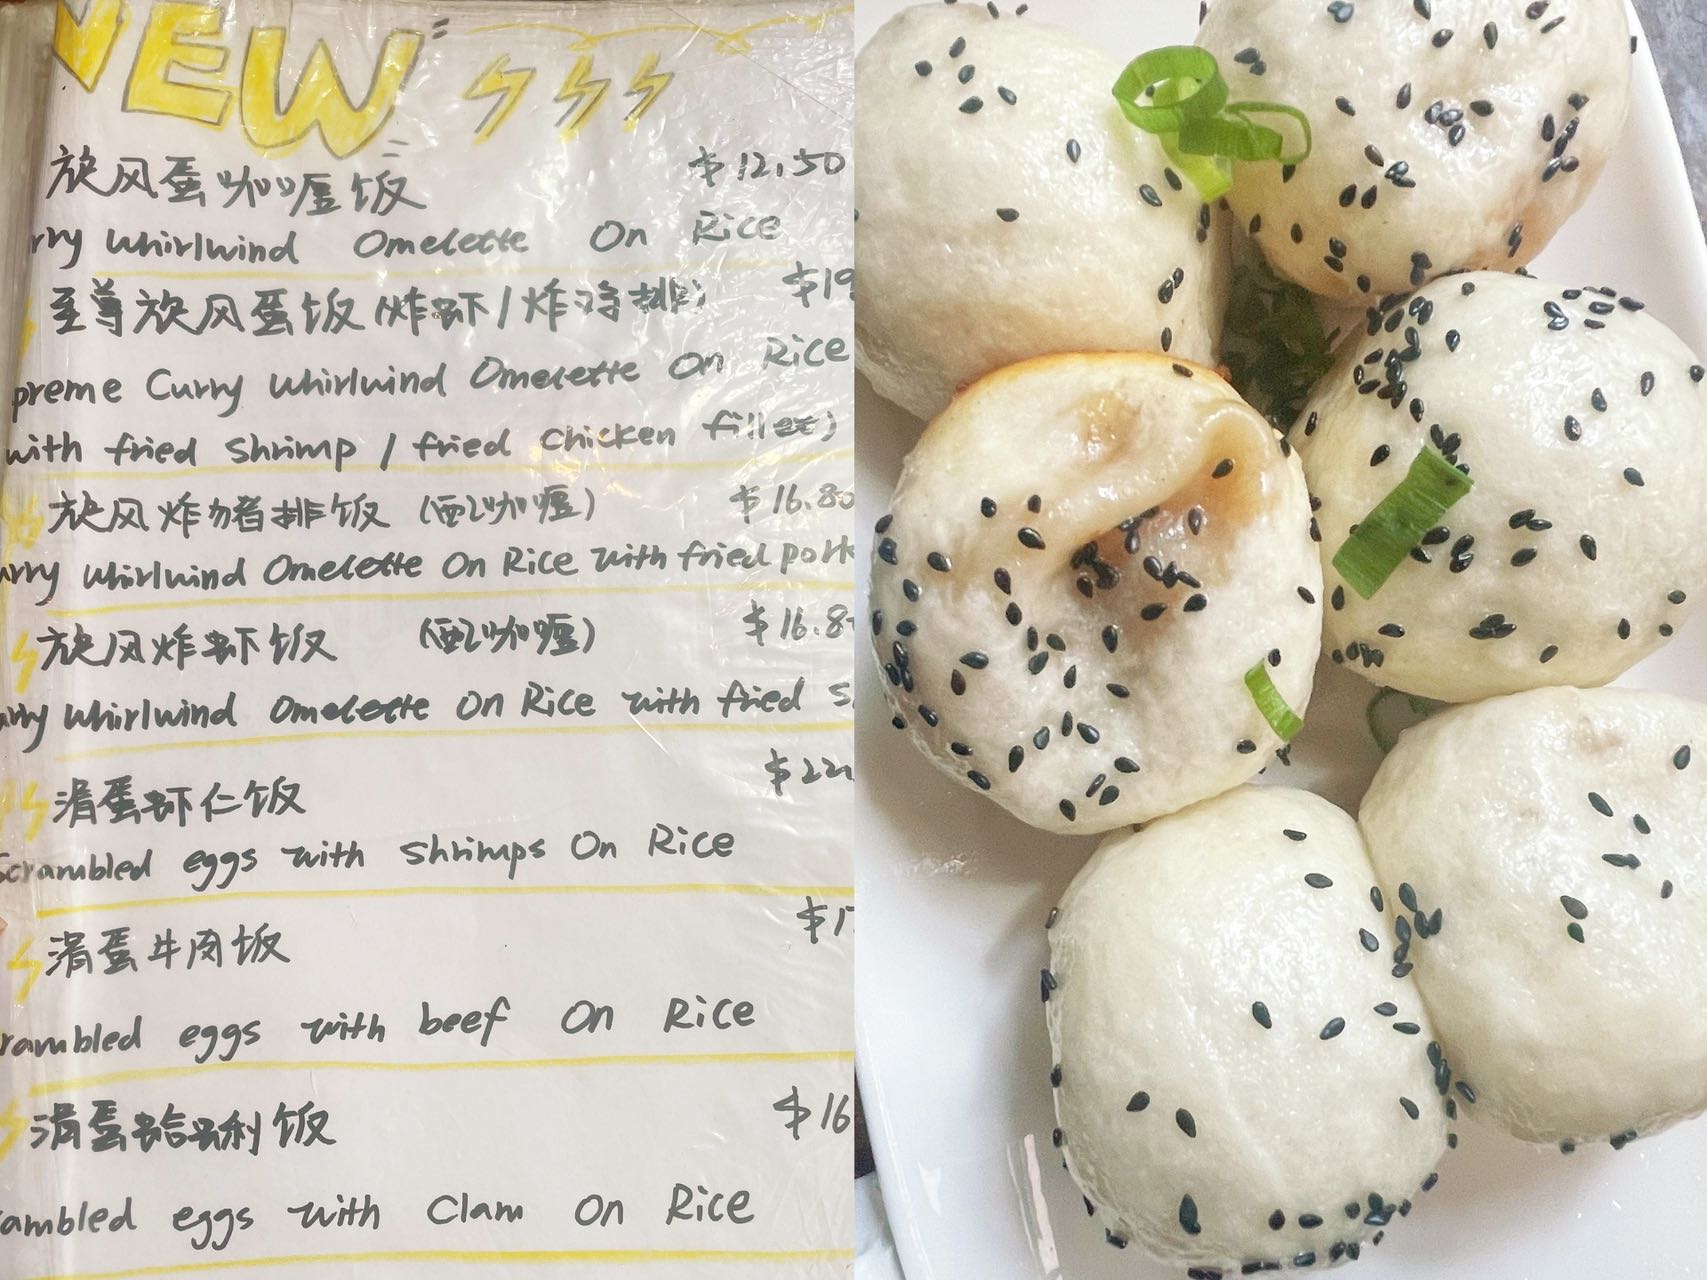 NEW
旋风蛋咖喱饭 $12.50
rry Whirlwind Omelette On Rice
至尊旋风蛋饭(炸虾/炸鸡排) $19
preme Curry Whirlwind Omelette On Rice
with fried Shrimp / fried chicken fillet)
旋风炸猪排饭 (配咖喱) $16.80
urry Whirlwind Omelette On Rice with fried pork
旋风炸虾饭 (配咖喱) $16.8
urry Whirlwind Omelette On Rice with fried S
滑蛋虾仁饭 $22.
Scrambled eggs with shrimps On Rice
滑蛋牛肉饭 $17
rambled eggs with beef On Rice
滑蛋蛤蜊饭 $16
ambled eggs with Clam On Rice